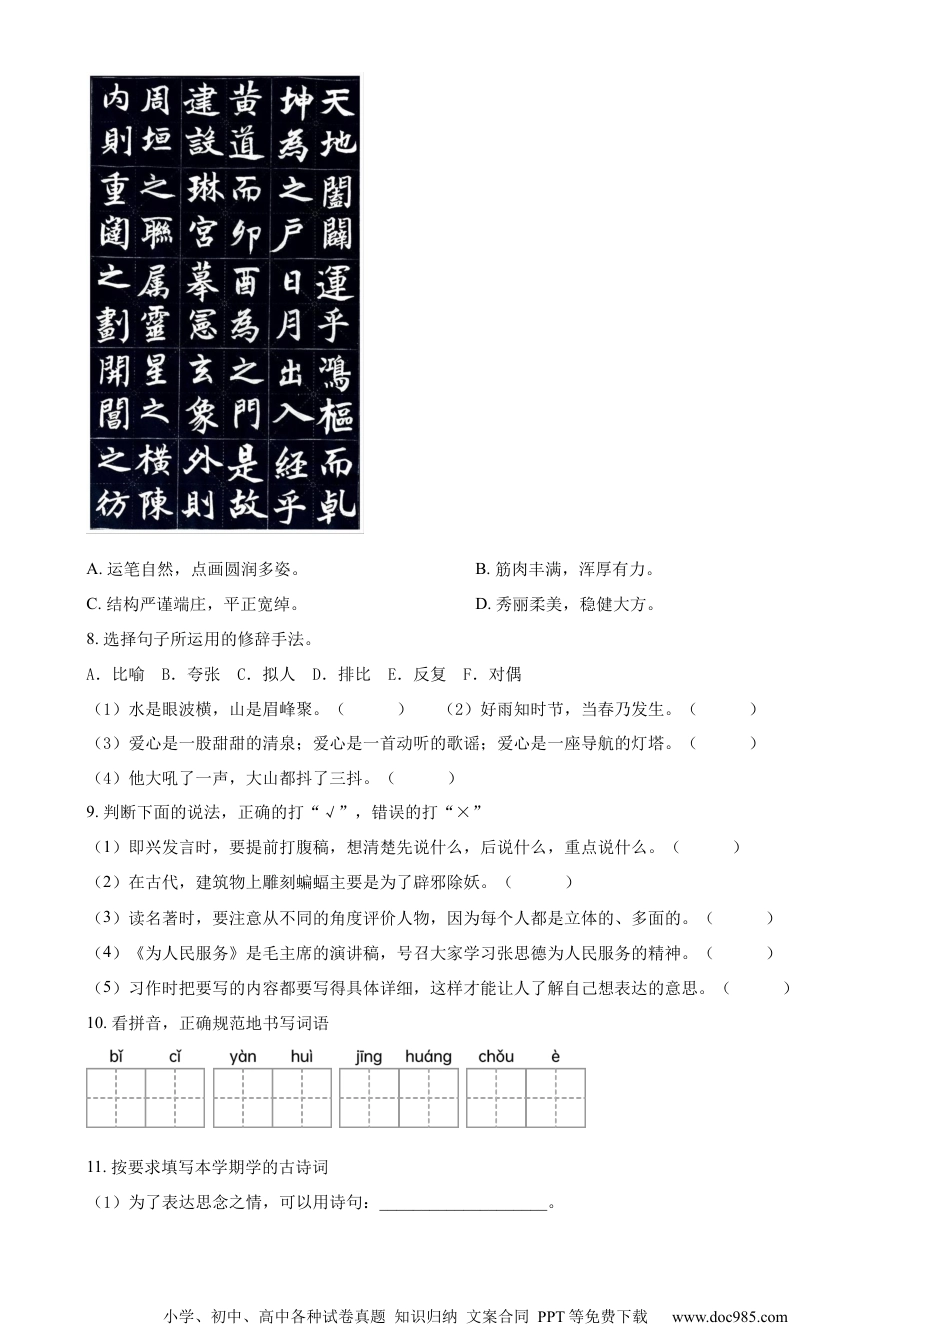 天地闔闢運乎鴻樞而乹
坤為之戶日月出入經乎
黄道而卯酉為之門是故
建設琳宮摹憲玄象外則
周垣之聯属靈星之橫陳
内則重闥之劃開閶之彷
A. 运笔自然，点画圆润多姿。 B. 筋肉丰满，浑厚有力。
C. 结构严谨端庄，平正宽绰。 D. 秀丽柔美，稳健大方。
8. 选择句子所运用的修辞手法。
A．比喻 B．夸张 C．拟人 D．排比 E．反复 F．对偶
（1）水是眼波横，山是眉峰聚。（　　　） （2）好雨知时节，当春乃发生。（　　　）
（3）爱心是一股甜甜的清泉；爱心是一首动听的歌谣；爱心是一座导航的灯塔。（　　　）
（4）他大吼了一声，大山都抖了三抖。（　　　）
9. 判断下面的说法，正确的打“√”，错误的打“×”
（1）即兴发言时，要提前打腹稿，想清楚先说什么，后说什么，重点说什么。（　　　）
（2）在古代，建筑物上雕刻蝙蝠主要是为了辟邪除妖。（　　　）
（3）读名著时，要注意从不同的角度评价人物，因为每个人都是立体的、多面的。（　　　）
（4）《为人民服务》是毛主席的演讲稿，号召大家学习张思德为人民服务的精神。（　　　）
（5）习作时把要写的内容都要写得具体详细，这样才能让人了解自己想表达的意思。（　　　）
10. 看拼音，正确规范地书写词语
bǐ cǐ yàn huì jīng huáng chǒu è
11. 按要求填写本学期学的古诗词
（1）为了表达思念之情，可以用诗句：____________________。
小学、初中、高中各种试卷真题 知识归纳 文案合同 PPT等免费下载 www.doc985.com